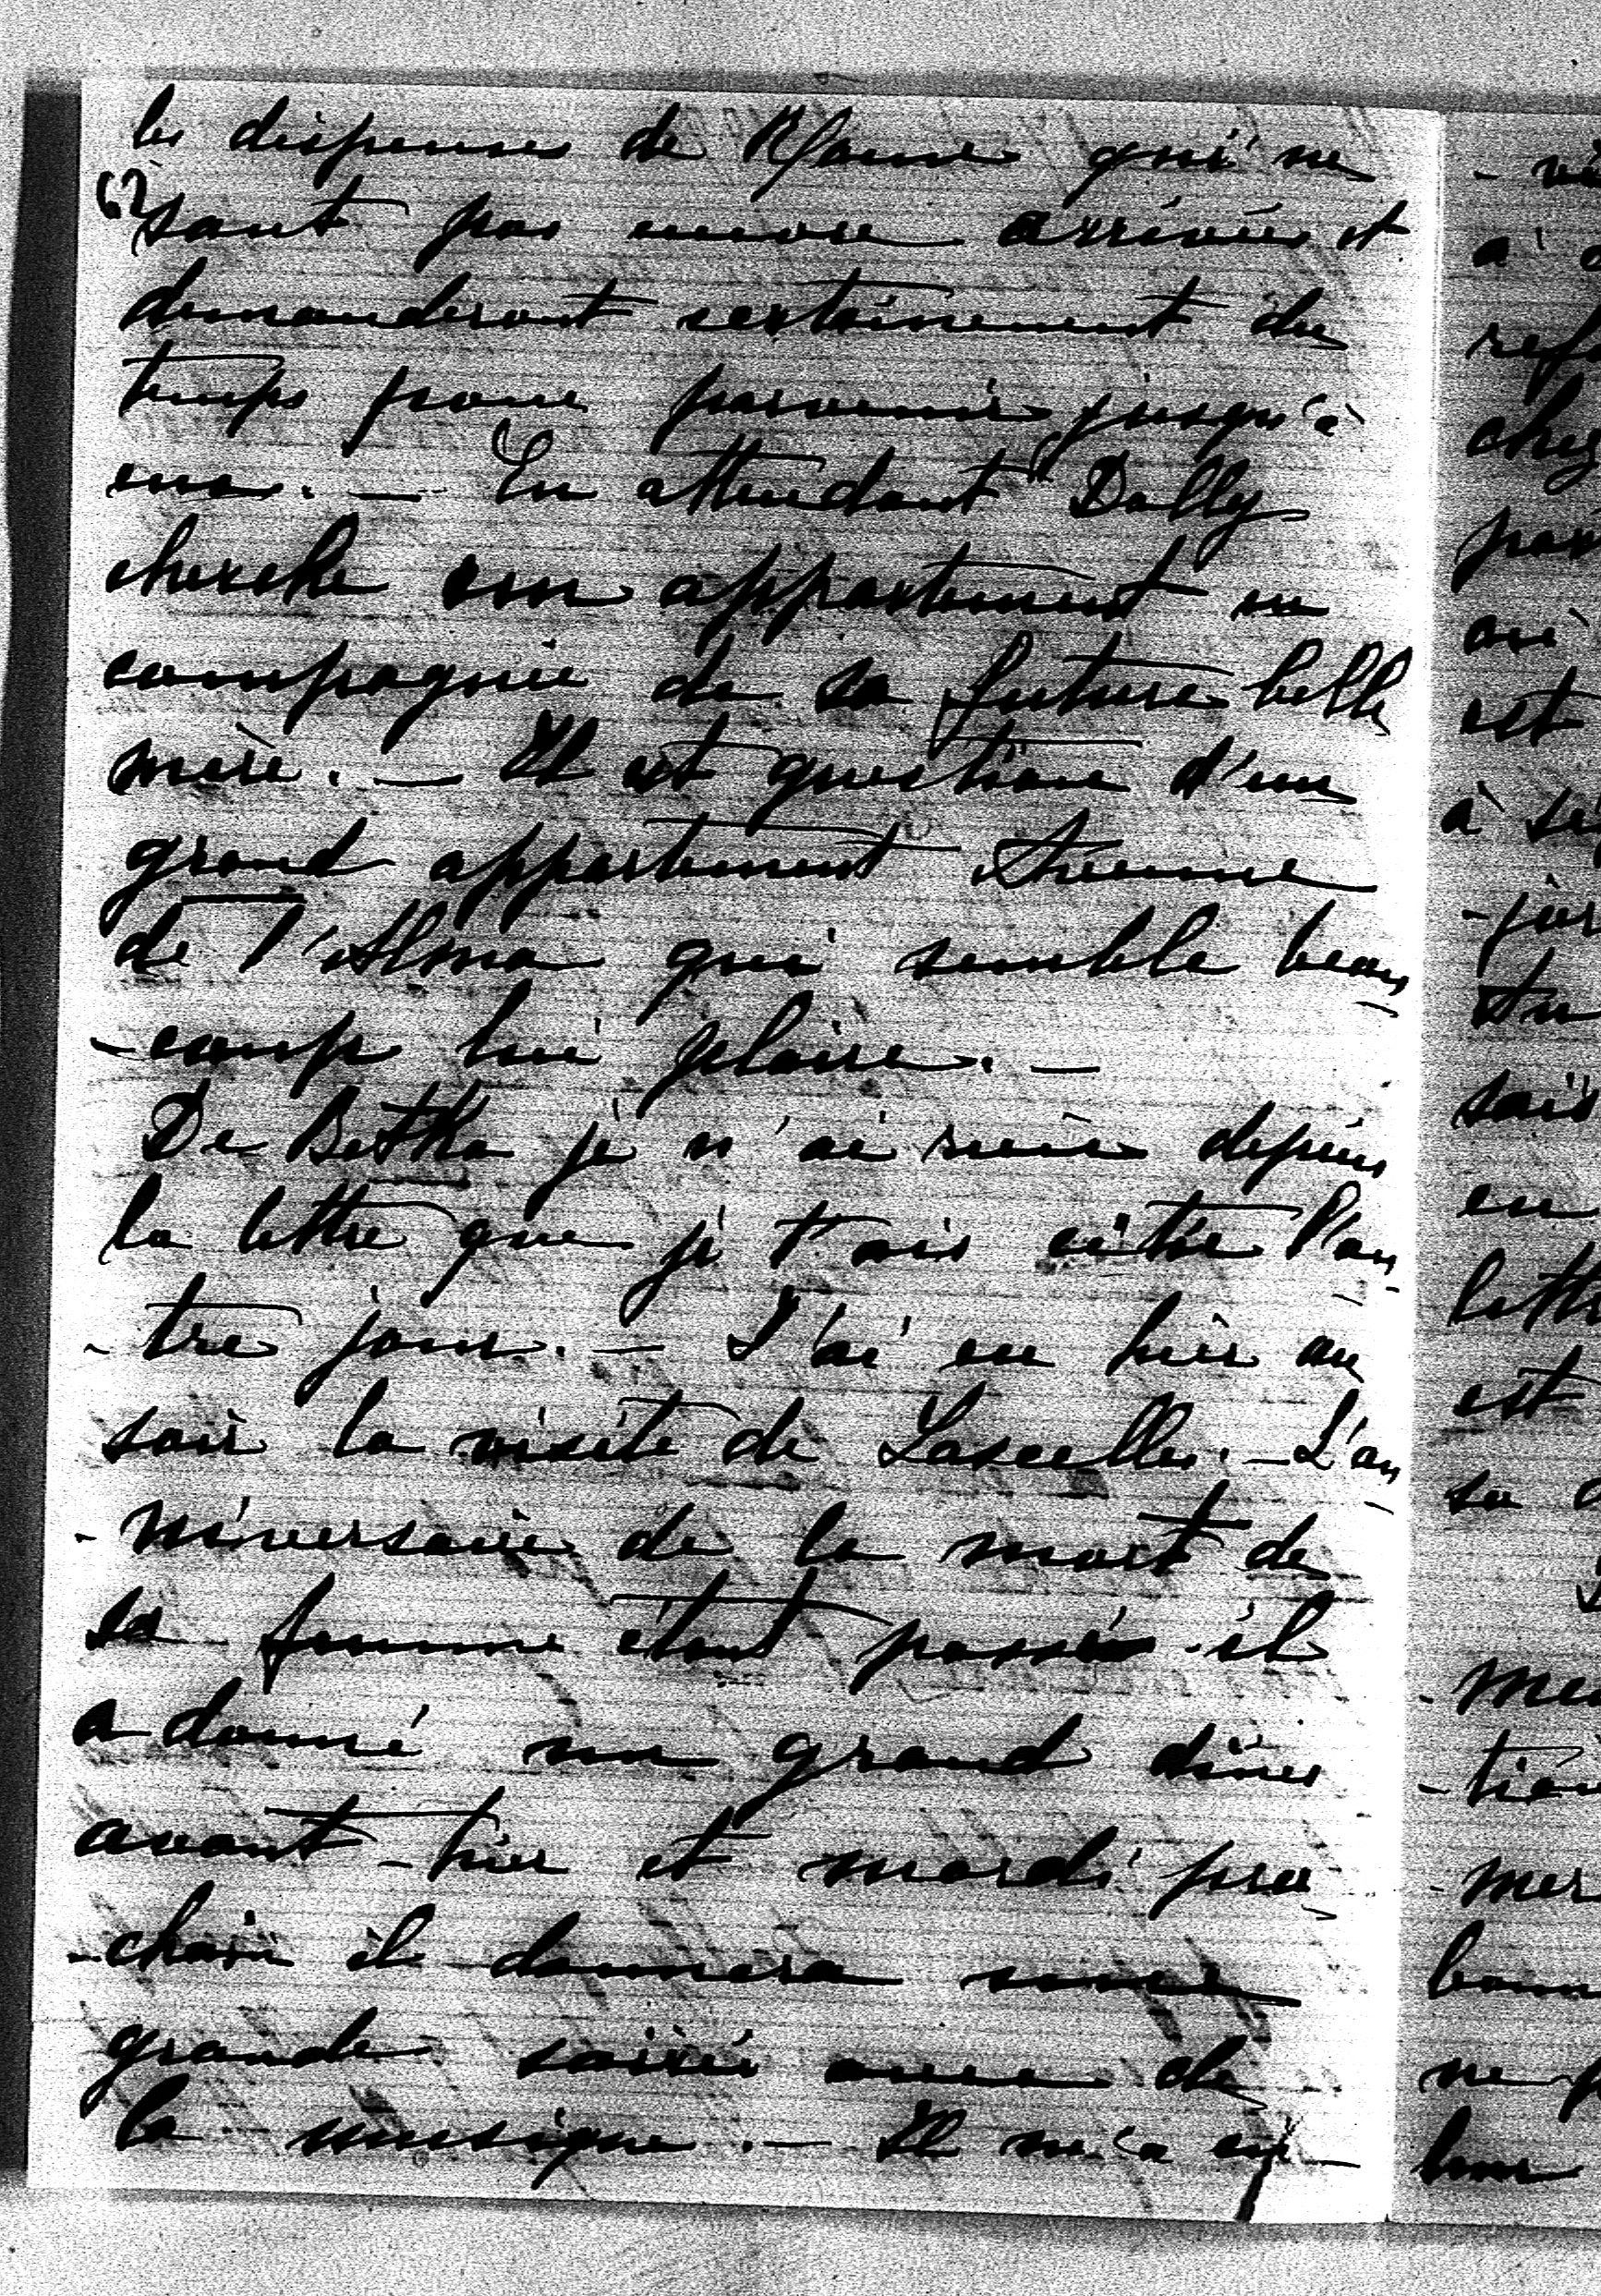 les dispenses de Rome qui ne
62
sont pas encore arrivées et
demanderont certainement du
temps pour parvenir jusqu'à
eux. — En attendant Dolly
cherche un appartement en
compagnie de sa future belle
mère. — Il est question d'un
grand appartement Avenue
de l'Alma qui semble beau
-coup lui plaire. —
De Betka je n'ai rien depuis
la lettre que je t'ais citée l'au
-tre jour. — J'ai eu hier au
soir la visite de Lascelles. — L'an
-niversaire de la mort de
sa femme étant passée il
a donné un grand dîner
avant-hier et mardi pro
-chain il donnera une
grande soirée avec de
la musique. — Il m'a
à
chez
est
à
tu
sais
en
est
sa